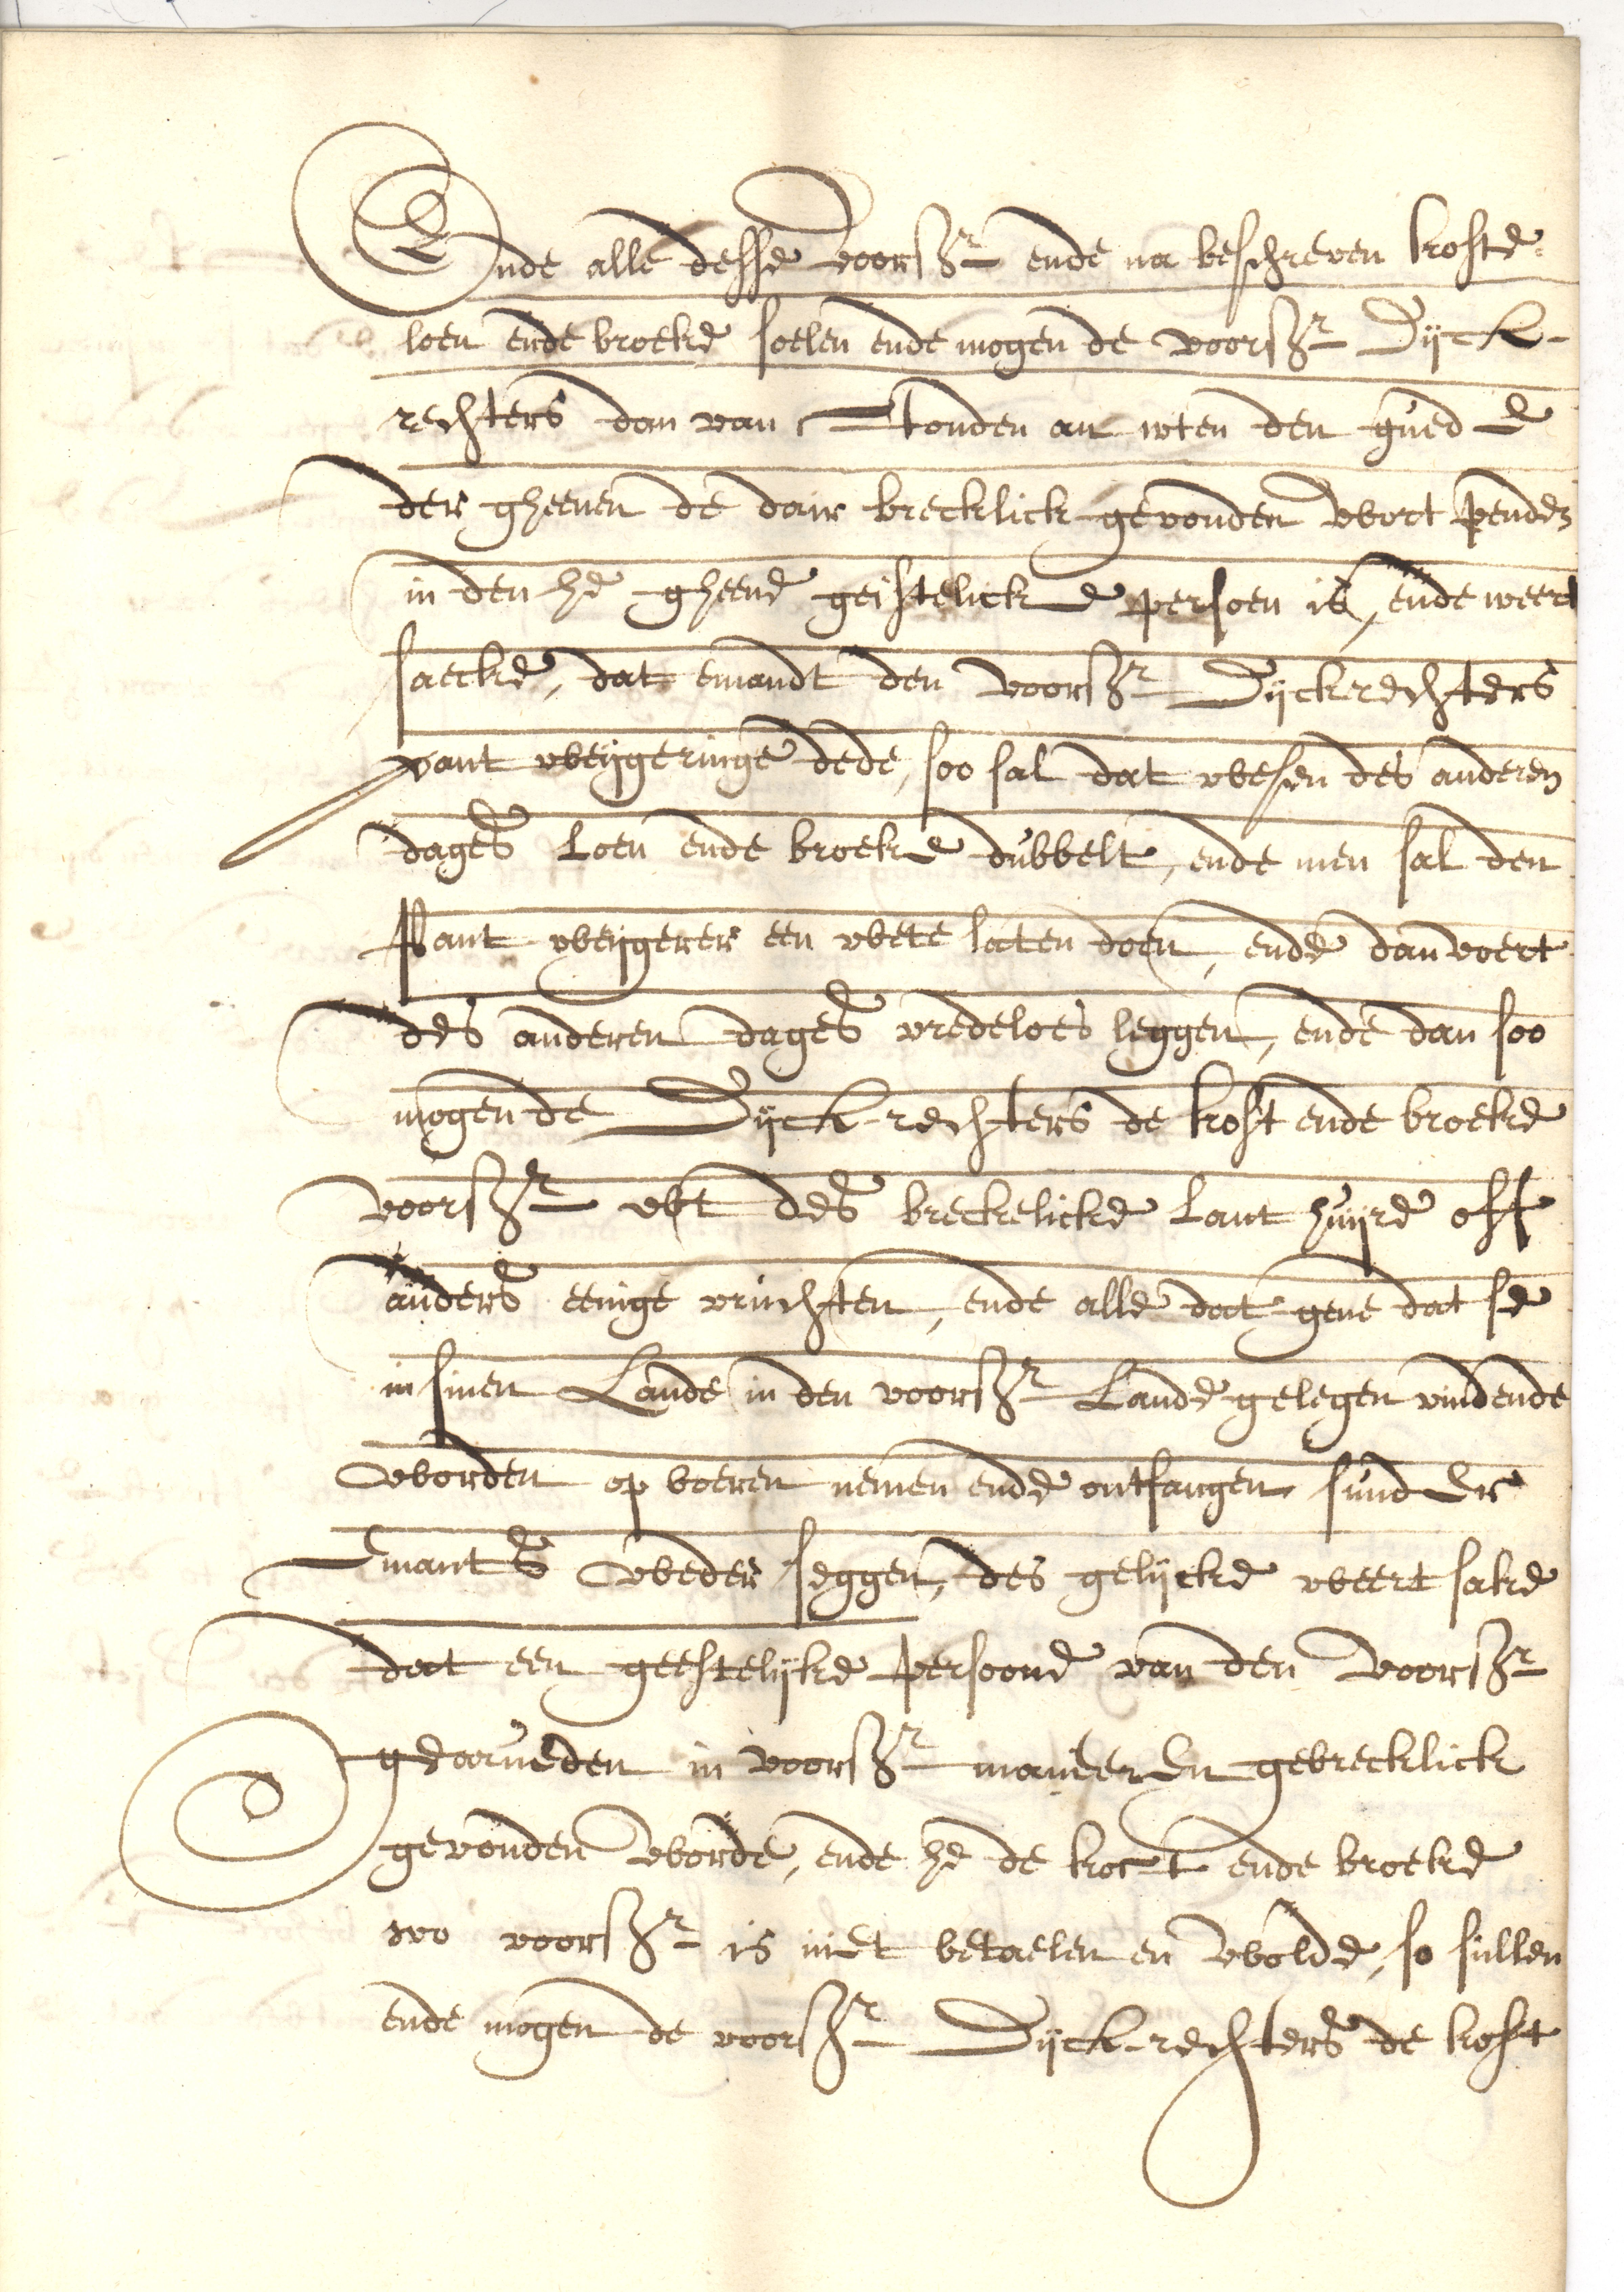 Ende alle desse voorsz ende na beschreven koste
loen ende broeke soelen ende mogen de voorsz Dijck-
rechters dan van stonden an wten den guede
der gheenen de dair brecklick gevonden wort penden
in den he gheene geistelicke persoen is, ende weert
saecke, dat emandt den voorsz Dijckrechters
pant weijgeringe dede, soo sal dat wesen des anderen
dages loen ende broeke dubbelt, ende men sal den
Pant weijgerer een wete laten doen, ende dan voert
des anderen dages vredeloes leggen, ende dan soo
mogen de Dijck-rechters de kost ende broeke
voorsz wt des breckelicke Lant huijre off
anders eenige vruchten, ende alle dat gene dat se
in sinen Lande in den voorsz Lande gelegen vindende
worden op boeren nemen ende ontfangen sunder
Emants weder seggen, des gelijcke weert sake
dat een geestelijke persoone van den voorsz
gearueden in voorsz manieren gebrecklick
gevonden worde, ende he de kost ende broeke
wo voorsz is niet betaelen en wolde, so sullen
ende mogen de voorsz Dijck-rechters de kost